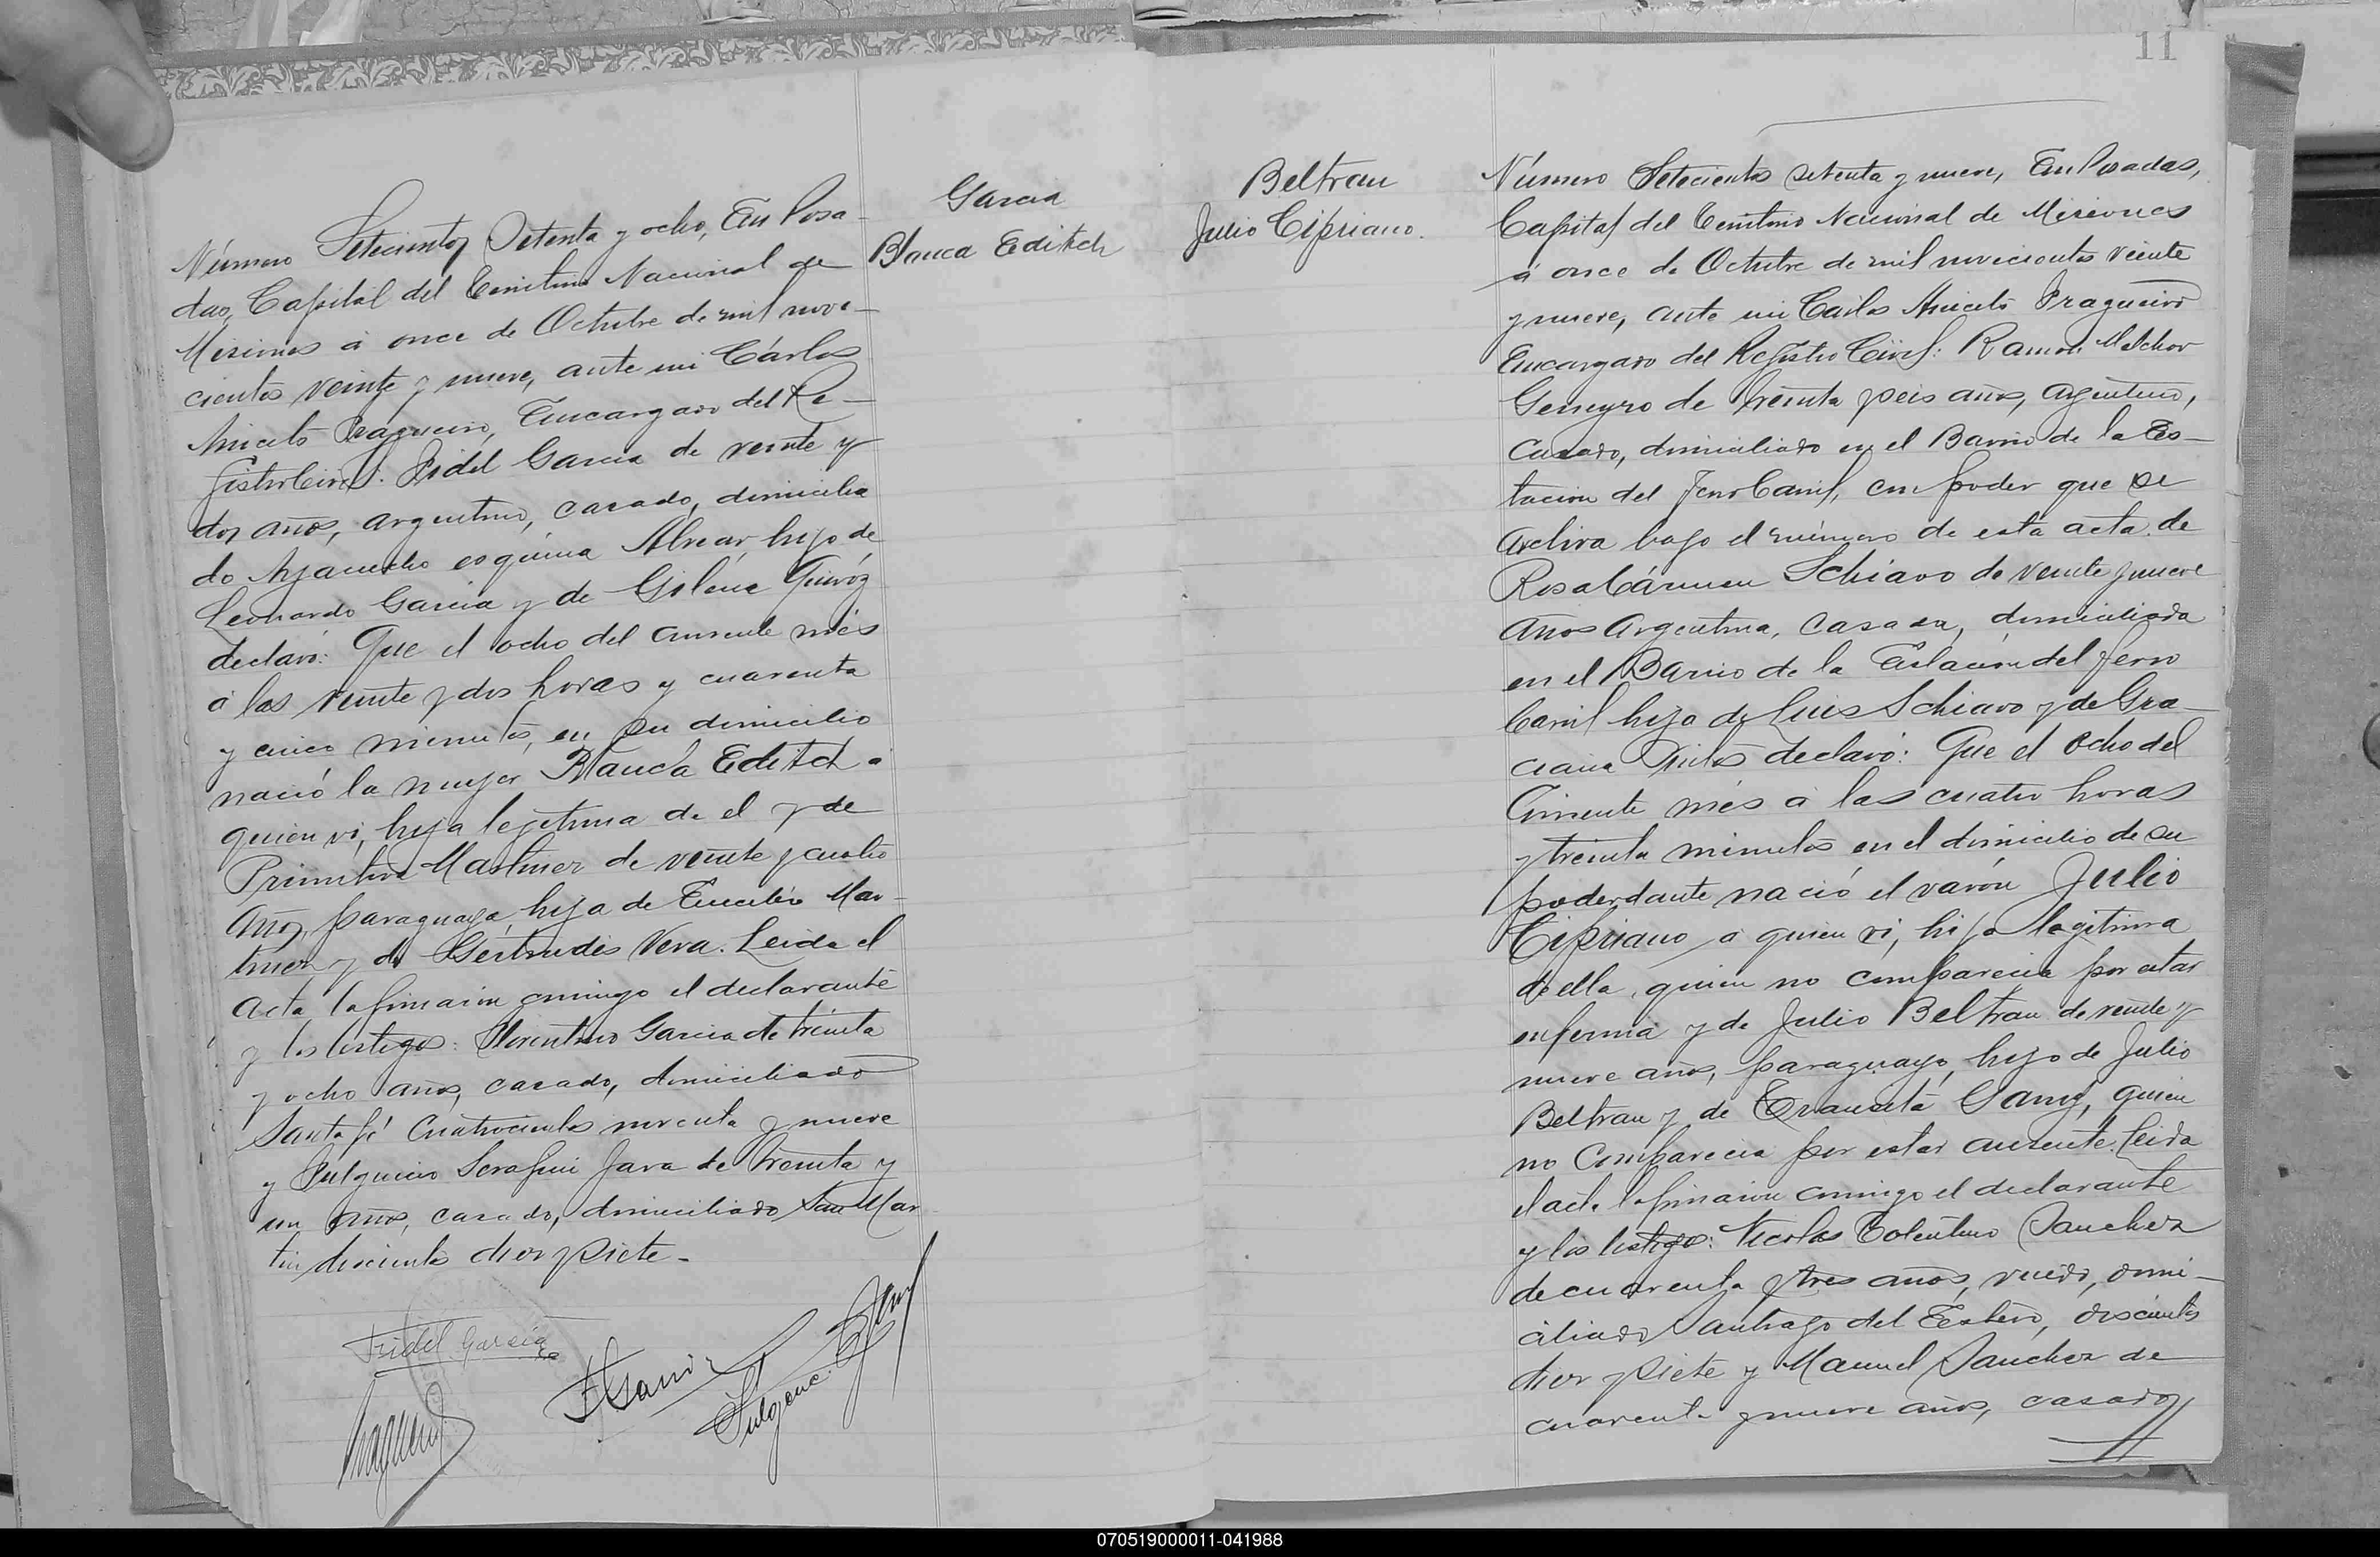 García
Blanca Editch
Número Setecientos Setenta y ocho, En Posa-
das, Capital del Territorio Nacional de
Misiones á once de Octubre de mil nove-
cientos veinte y nueve, ante mi Cárlos
Aniceto Fragueiro, Encargado del Re-
gistro Civil: Fidel Garcia de veinte y
dos años, argentino, casado, domicilia
do Ayacucho esquina Alvear, hijo de
Leonardo Garcia y de Quiróz
declaró: Que el ocho del corriente més
á las veinte y dos horas y cuarenta
y cinco minutos, en su domicilio
nació la mujer Blanca Editch á
quien vi, hija legitima de el y de
Primitiva Martinez de veinte y cuatro
años, paraguaya, hija de Mar-
tinez y de Gertrudis Vera. Leida el
acta la firmaron conmigo el declarante
y los testigos: Florentino Garcia de treinta
y ocho años, casado, domiciliado
Santa fé cuatrocientos noventa y nueve
y Fulgencio Serafin Jara de treinta y
un años, casado, domiciliado San Mar
tin doscientos diez y siete.-
Fidél García
F Garcia
Fulgenc.
Fragueiro
11
Beltran
Julio Cipriano.
Número Setecientos setenta y nueve, En Posadas,
Capital del Territorio Nacional de Misiones
á once de Octubre de mil novecientos veinte
y nueve, ante mi Carlos Aniceto Fragueiro
Encargado del Registro Civil: Ramon Melchor
de treinta y seis años, argentino,
casado, domiciliado en el Barrio de la Es-
tacion del Ferro Carril, con poder que se
archiva bajo el número de esta acta de
Rosa Cármen Schiavo de veinte y nueve
años argentina, casada, domiciliada
en el Barrio de la Estacion del Ferro
Carril hija de Luis Schiavo y de Gra-
ciana declaró: Que el ocho del
corriente més á las cuatro horas
y treinta minutos en el domicilio de su
poderdante nació el varón Julio
Cipriano á quien vi, hijo legitimo
de ella, quien no comparecia por estar
enferma y de Julio Beltran de veinte y
nueve años, paraguayo, hijo de Julio
Beltran y de quien
no comparecia por estar ausente. Leida
el acta la firmaron conmigo el declarante
y los testigos: Nicolas Tolentino Sanchez
de cuarenta y tres años, viudo, domi-
ciliado Santiago del Estero, doscientos
diez y siete y Manuel Sanchez de
cuarenta y nueve años, casado,
070519000011-041988